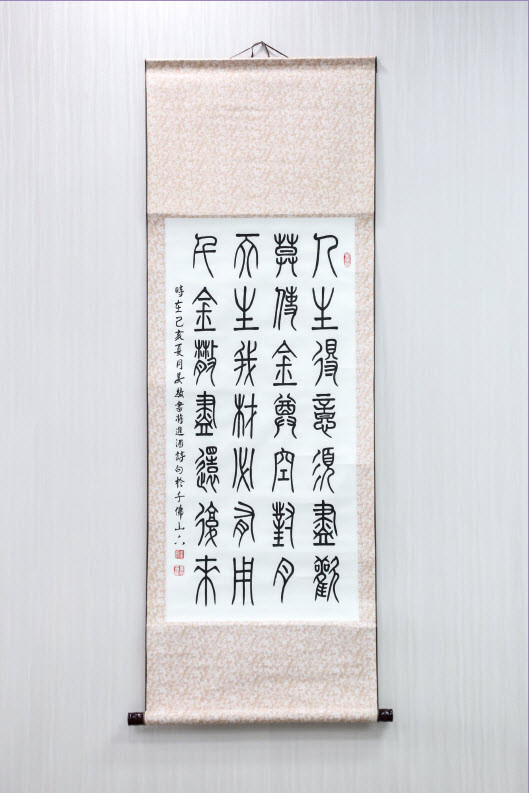 人生得意須盡歡
莫使金尊空對月
天生我材必有用
千金散盡還復來
時在己亥夏月書將進酒詩句於千佛山下